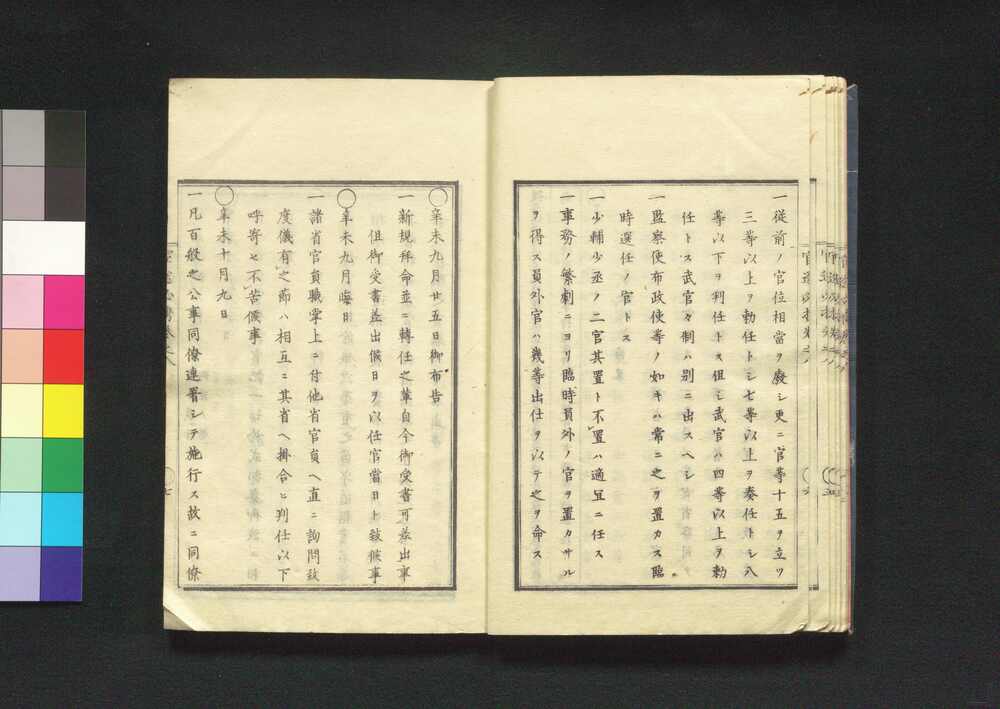 一従前ノ官位相當ヲ廢シ更ニ官等十五ヲ立ツ
三等以上ヲ勅任トシ七等以上ヲ奏任トシ八
等以下ヲ判任トス但シ武官ハ四等以上ヲ勅
任トス武官々制ハ别ニ出スヘシ
一監察使布政使等ノ如キハ常ニ之ヲ置カス臨
時選任ノ官トス
一少輔少丞ノ二官其置ト不置ハ適冝ニ任ス
一事務ノ繁劇ニヨリ臨時員外ノ官ヲ置カサル
ヲ得ス員外官ハ幾等出仕ヲ以テ之ヲ命ス
○辛未九月廿五日御布告
一新規拜命並ニ轉任之輩自今御受書可差出事
但御受書差出候日ヲ以任官當日ト致候事
○辛未九月晦日
一諸省官員職掌上ニ付他省官員へ直ニ詢問致
度儀有之節ハ相互ニ其省へ掛合ヒ判任以下
呼寄セ不苦候事
○辛未十月九日
一凡百般之公事同僚連署シテ施行ス故ニ同僚